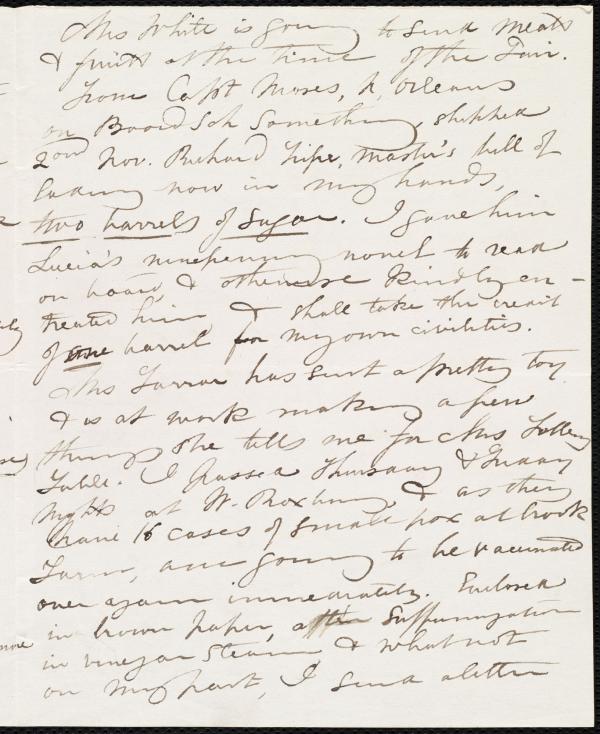 Mrs White is going to send meats
& fruits at the time of the Fair.
From Capt Moses, N. Orleans
on Board Sch Something, shipped
2nd Nov. Richard Fife, master's bill of
lading now in my hands,
two barrels of Sugar. I gave him
Lucia's ninepenny novel to read
on board, & otherwise kindly en-
treated him, & shall take the credit
of one barrel for my own civilities.
Mrs Farrar has sent a pretty toy
& is at work making a few
things she tells me for Mrs
Table. I passed Thursday & Friday
nights at W. Roxbury, & as they
have 16 cases of small pox at Brook
Farm, am going to be vaccinated
over again immediately. Enclosed
in brown paper, after suffumigation
in vinegar steam & what not
on my part, I send a letter